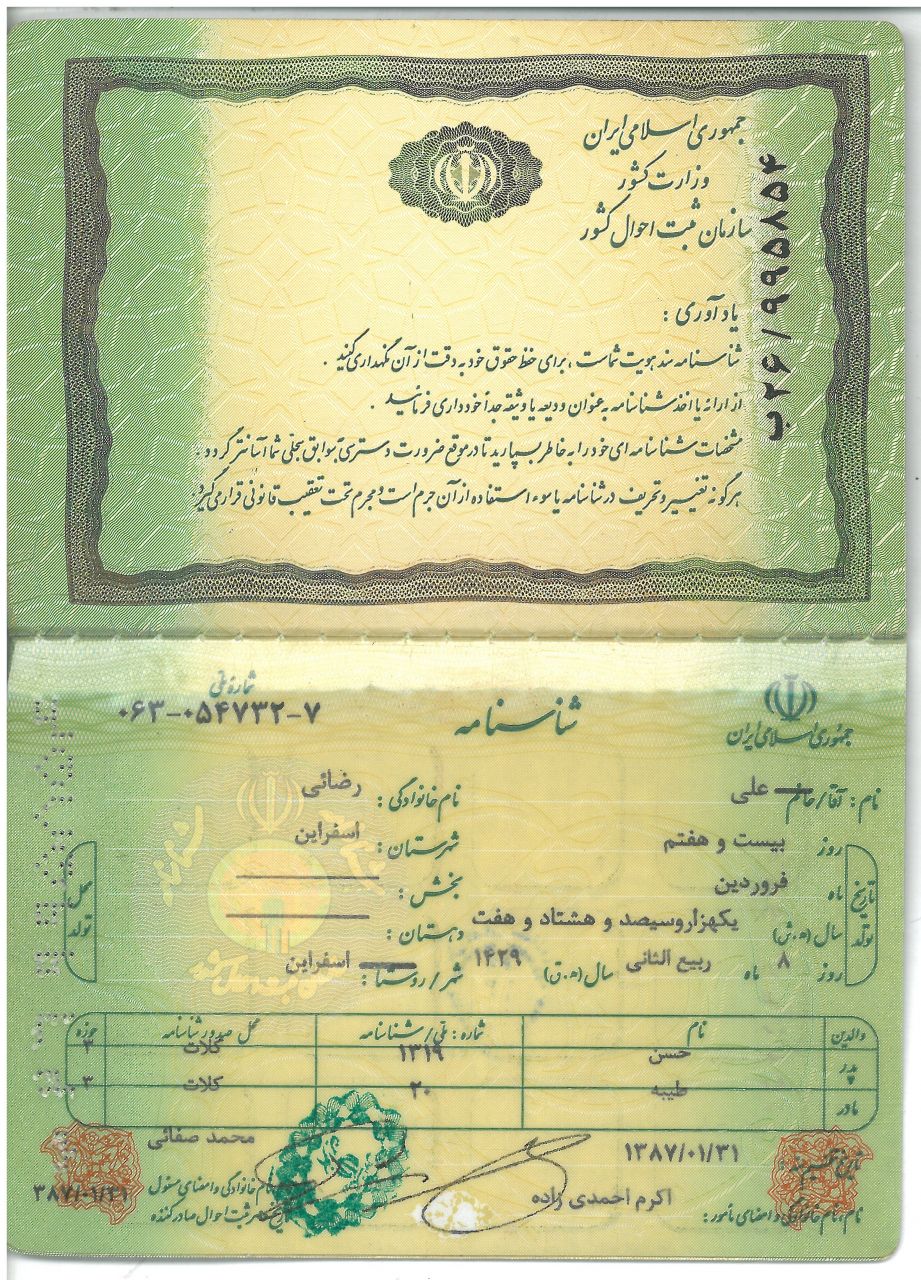 جمهوری اسلامی ایران
وزارت کشور
سازمان ثبت احوال کشور
ب۲۶/۹۹۵۸۵۴
یادآوری :
شناسنامه سند هویت شماست ، برای حفظ حقوق خود به دقت از آن نگهداری کنید .
از ارائه یا اخذ شناسنامه به عنوان ودیعه یا وثیقه جداً خودداری فرمائید .
مشخصات شناسنامه ای خود را به خاطر بسپارید تا در موقع ضرورت دسترسی به سوابق سجلی شما آسانتر گردد .
هرگونه تغییر و تحریف در شناسنامه یا سوء استفاده از آن جرم است و مجرم تحت تعقیب قانونی قرار می گیرد .
جمهوری اسلامی ایران
شناسنامه
شماره ملی
۰۶۳-۰۵۴۷۳۲-۷
نام : آقا/خانم علی
نام خانوادگی : رضائی
تاریخ تولد
روز بیست و هفتم
ماه فروردین
سال (ه.ش) یکهزاروسیصد و هشتاد و هفت
روز ۸ ماه ربیع الثانی سال (ه.ق) ۱۴۲۹
محل تولد
شهرستان : اسفراین
بخش :
دهستان :
شهر/روستا : اسفراین
والدین نام شماره : ملی/شناسنامه محل صدور شناسنامه حوزه
پدر حسن ۱۳۱۹ کلات ۳
مادر طیبه ۲۰ کلات ۳
تاریخ تنظیم سند : ۱۳۸۷/۰۱/۳۱
نام ، نام خانوادگی و امضای مأمور : اکرم احمدی زاده
محمد صفائی
نام خانوادگی و امضای مسئول
ثبت احوال صادر کننده
۳۸۷/۰۱/۳۱